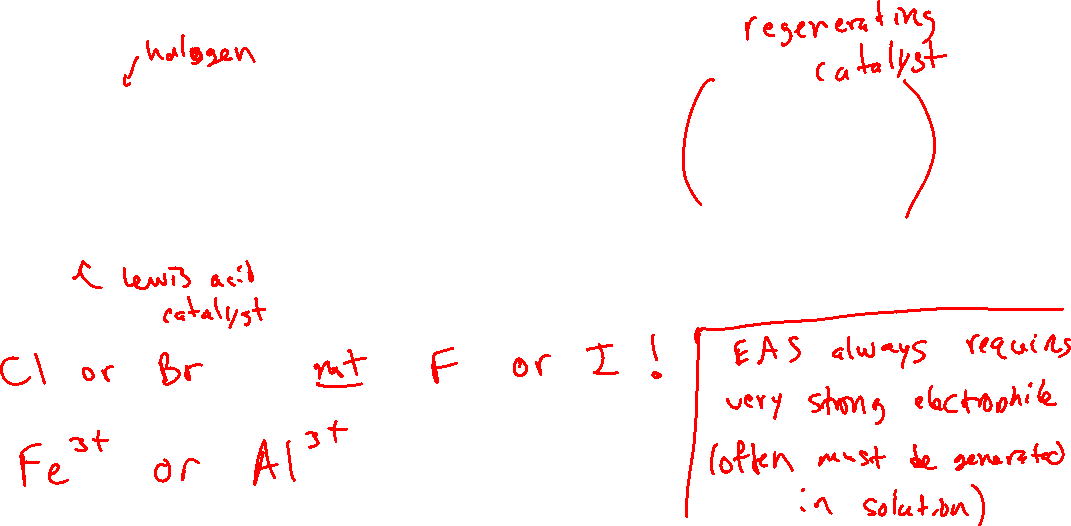 halogen
regenerating
catalyst
Lewis acid
catalyst
Cl or Br not F or I !
Fe3+ or Al3+
EAS always requires
very strong electrophile
(often must be generated
in solution)